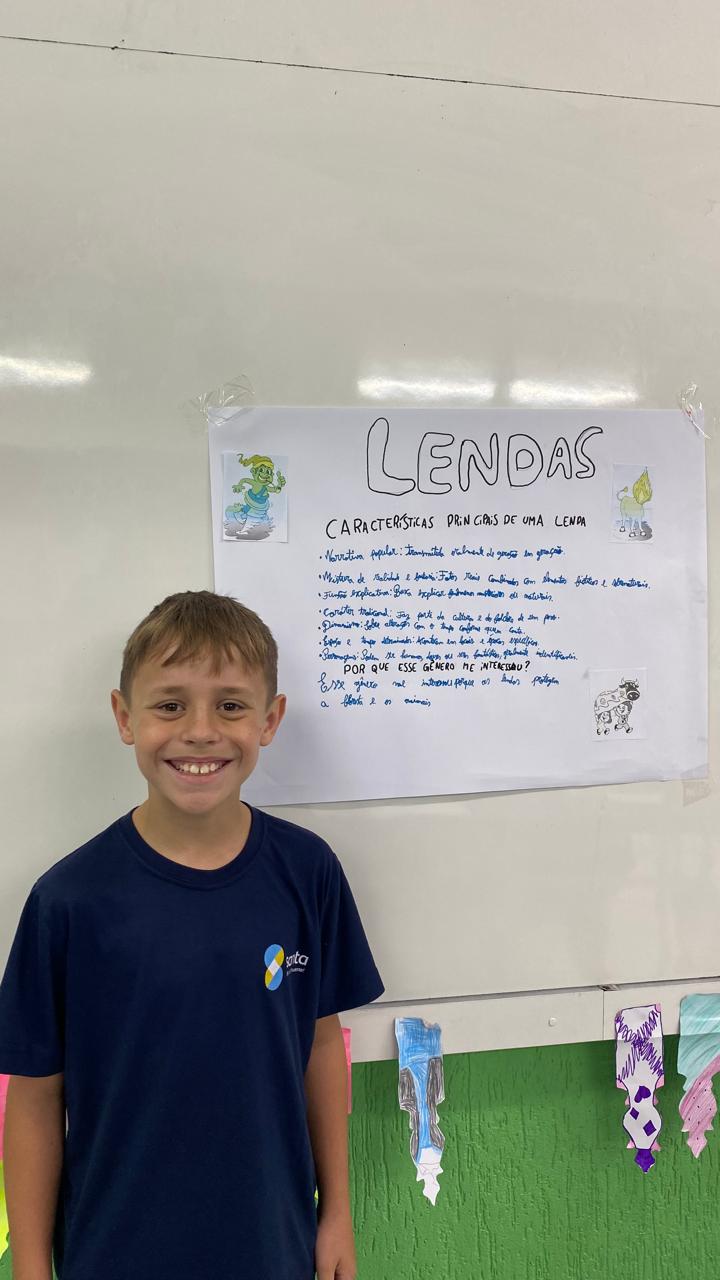 LENDAS
CARACTERÍSTICAS PRINCIPAIS DE UMA LENDA
• Narrativa popular: transmitida oralmente de geração em geração.
• Mistura de realidade e fantasia: Fatos reais combinados com elementos fictícios e sobrenaturais.
• Função explicativa: Busca explicar fenômenos naturais.
• Caráter tradicional: Faz parte da cultura e do folclore de um povo.
• Dinamismo: Sofre alterações com o tempo conforme quem conta.
• Espaço e tempo determinados: em locais e épocas específicos.
• Personagens: Podem ser humanos, seres fantásticos,
POR QUE ESSE GÊNERO ME INTERESSOU?
Esse gênero me porque as lendas protegem
a floresta e os animais
santa